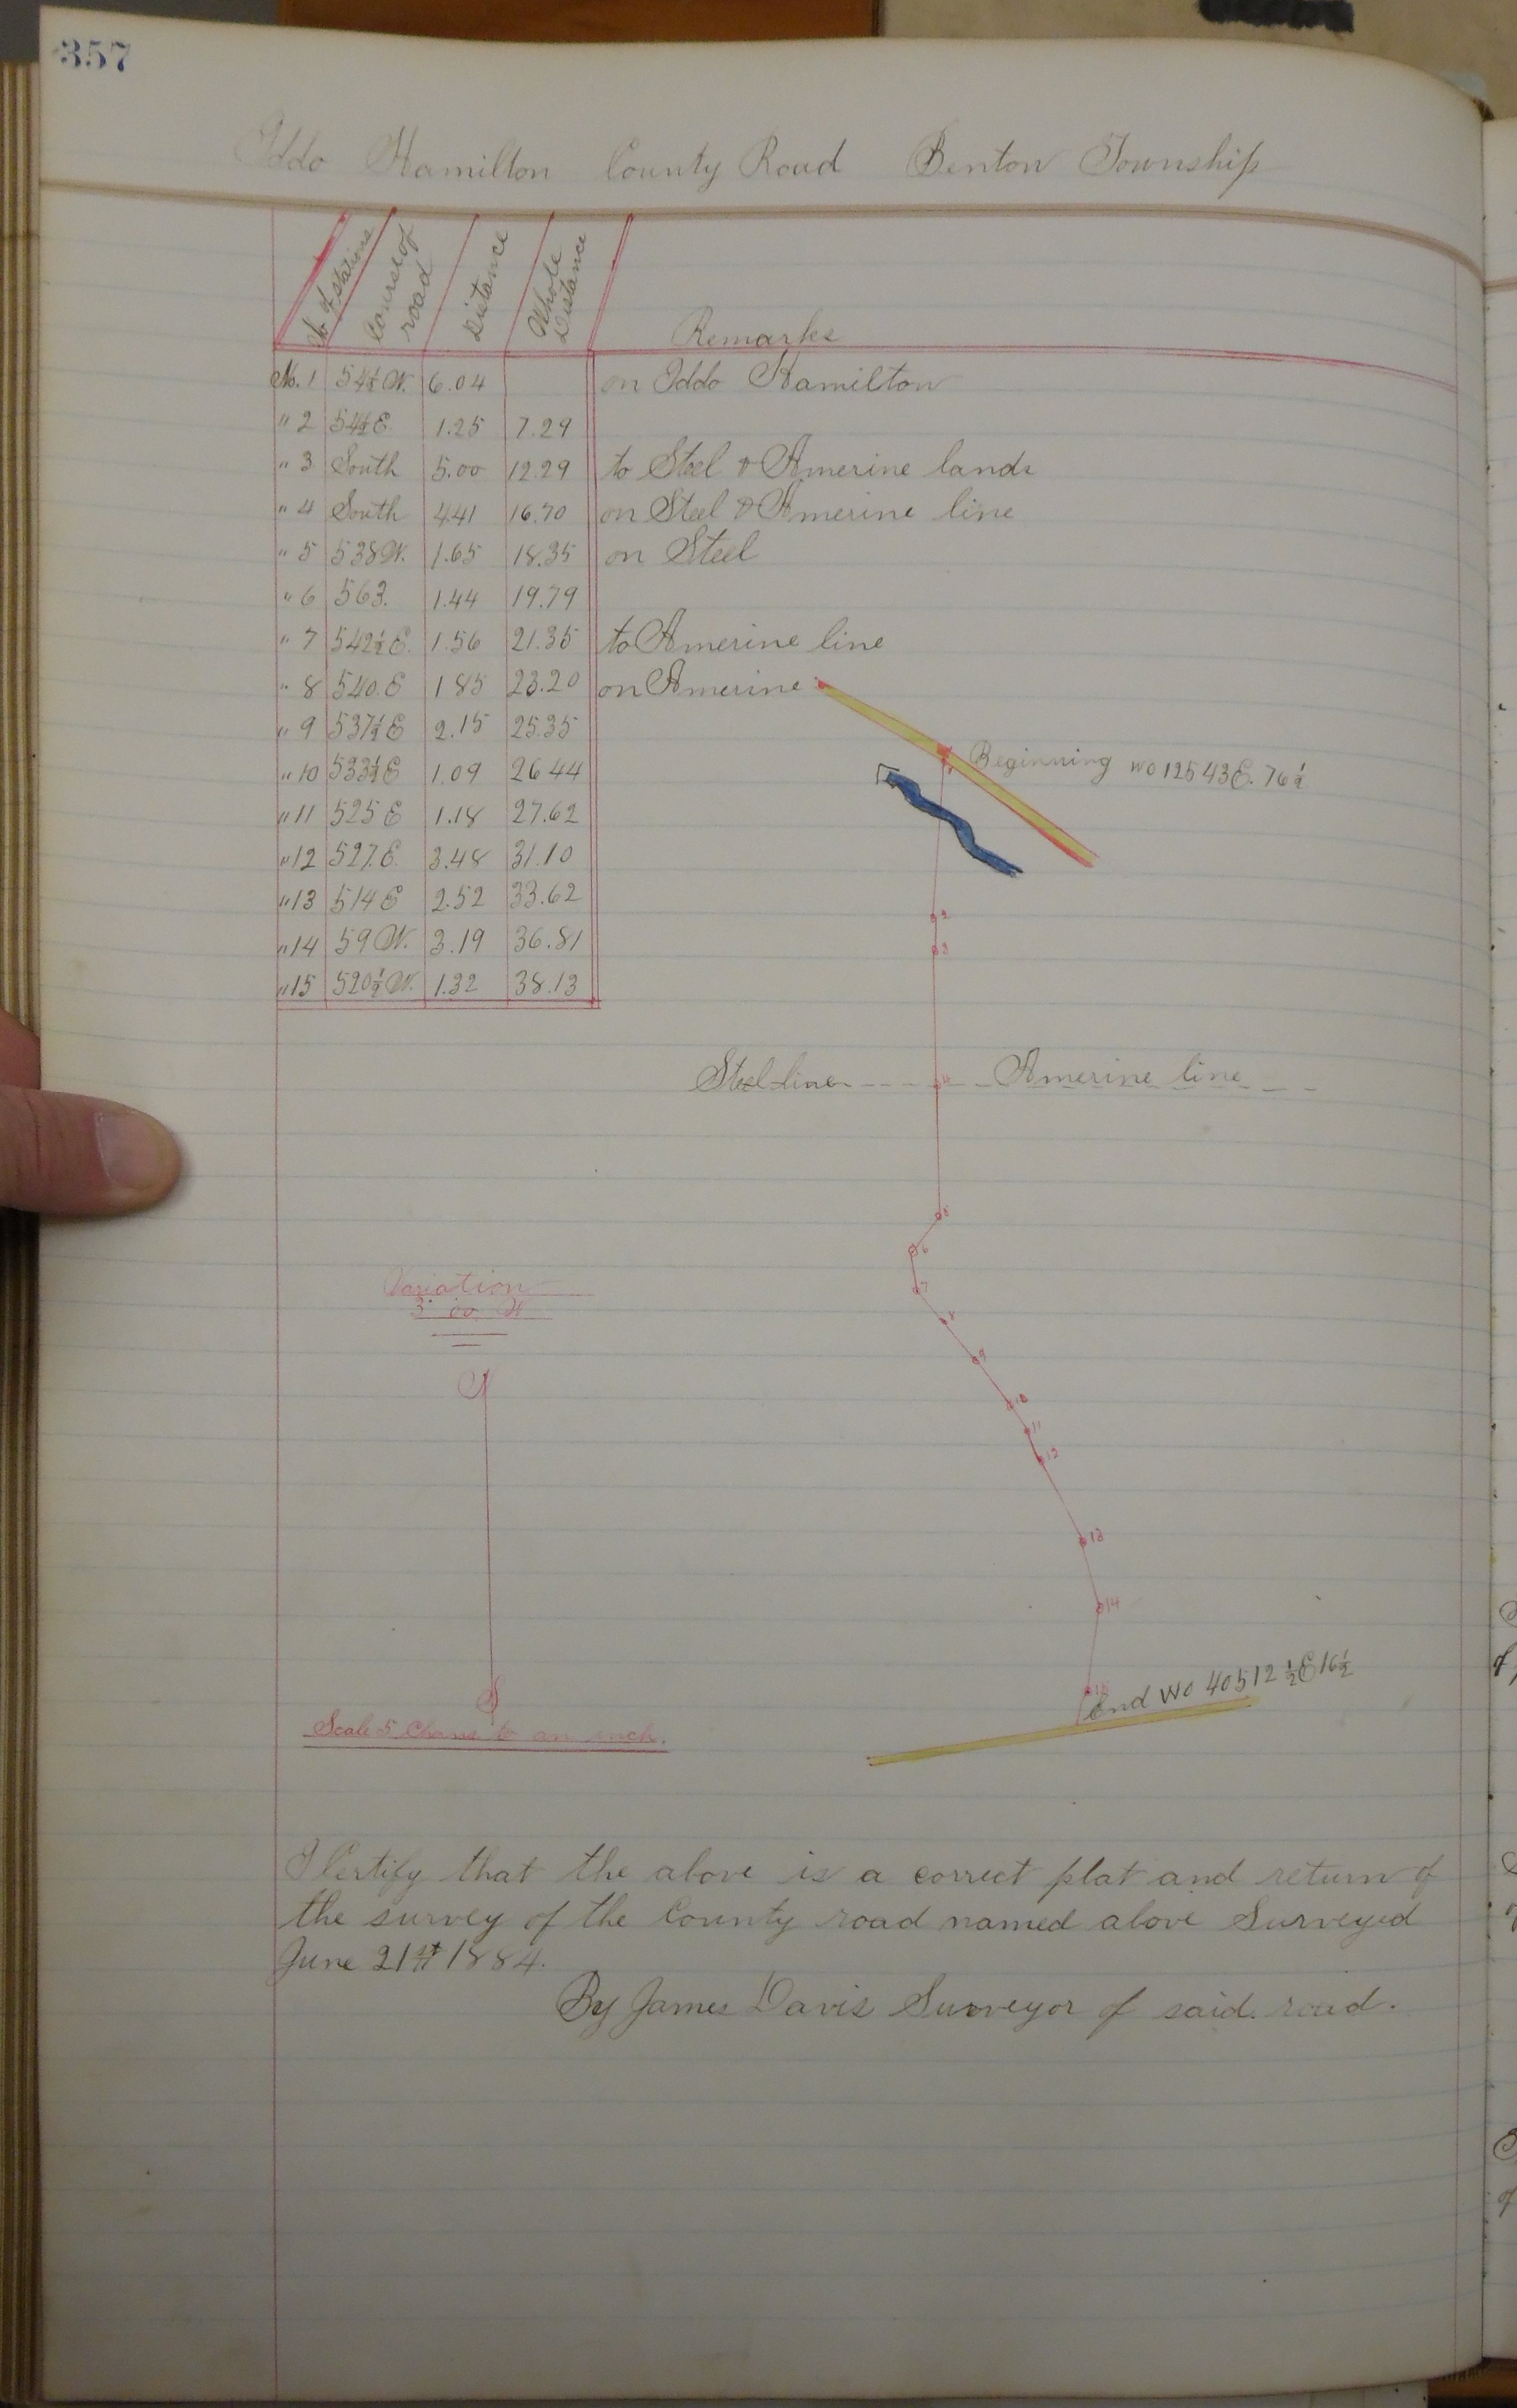 357
Iddo Hamilton County Road Benton Township
No of Stations Course of road Distance Whole Distance Remarks
No. 1 S4½ W. 6.04 on Iddo Hamilton
" 2 S4½ E. 1.25 7.29
" 3 South 5.00 12.29 to Steel & Amerine lands
" 4 South 4.41 16.70 on Steel & Amerine line
" 5 S38 W. 1.65 18.35 on Steel
" 6 S6 1.44 19.79
" 7 S42½ E. 1.56 21.35 to Amerine line
" 8 S40. E 1 85 23.20 on Amerine
" 9 S37½ E 2.15 25.35
" 10 S33½ E 1.09 26 44
" 11 S25 E 1.18 27.62
" 12 S27. E. 3.48 31.10
" 13 S14 E 2.52 33.62
" 14 S9 W. 3.19 36.81
" 15 S20½ W. 1.32 38.13
Beginning WO 12 S 43 E. 76½
2
3
Steel line 4 Amerine line
5
6
7
Variation
3° 00 W
8
9
N
10
11
12
13
14
15
End WO 40 S 12 ½ E 16½
S
Scale 5 Chains to an inch.
I Certify that the above is a correct plat and return of
the survey of the County road named above Surveyed
June 21st 1884.
By James Davis Surveyor of said. road.